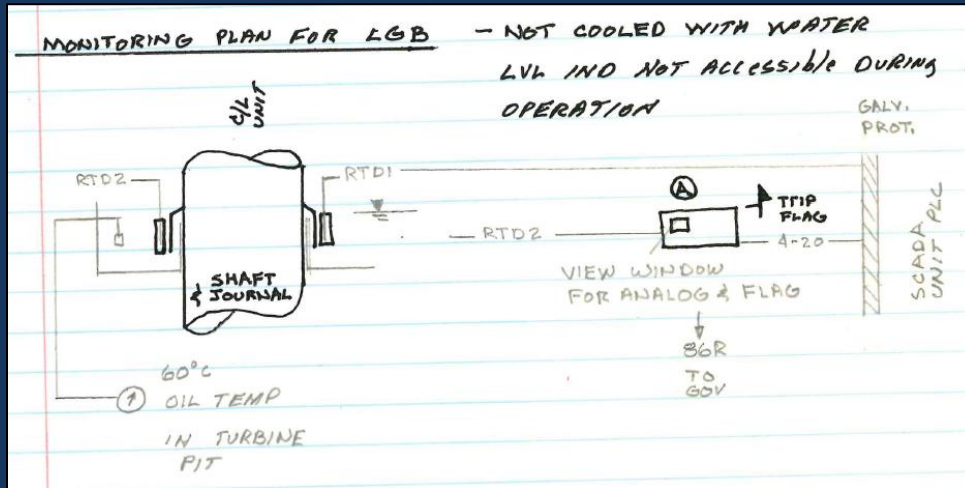 MONITORING PLAN FOR LGB - NOT COOLED WITH WATER
LVL IND NOT ACCESSIBLE DURING
OPERATION
C/L
UNIT
GALV.
PROT.
RTD2
RTD1
A
TRIP
FLAG
RTD2
4-20
SCADA
UNIT PLC
VIEW WINDOW
FOR ANALOG & FLAG
SHAFT
& JOURNAL
86R
TO
GOV
60°C
OIL TEMP
IN TURBINE
PIT